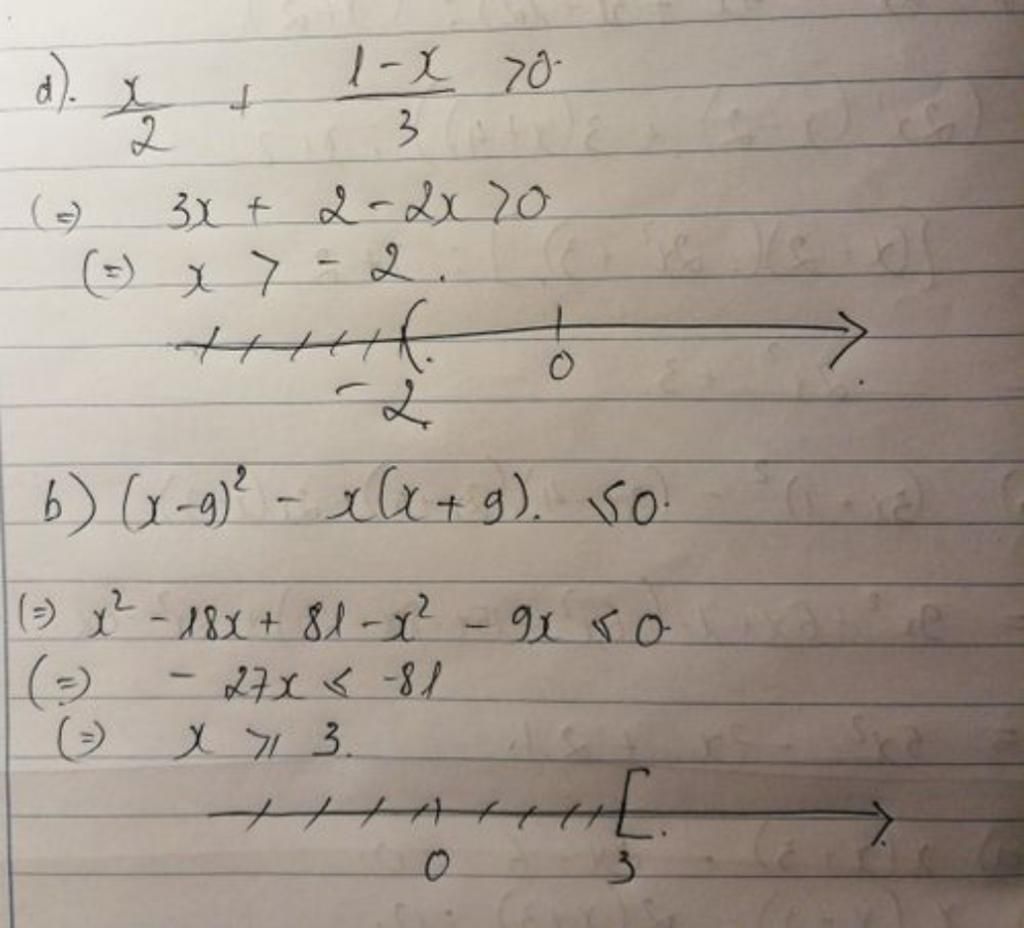 a). x/2 + (1-x)/3 >0.
(=) 3x + 2-2x >0
(=) x > -2.
-2 0
b) (x-9)² - x(x+9). ≤0.
(=) x² -18x + 81 -x² - 9x ≤ 0.
(=) - 27x ≤ -81
(=) x ≥ 3.
0 3